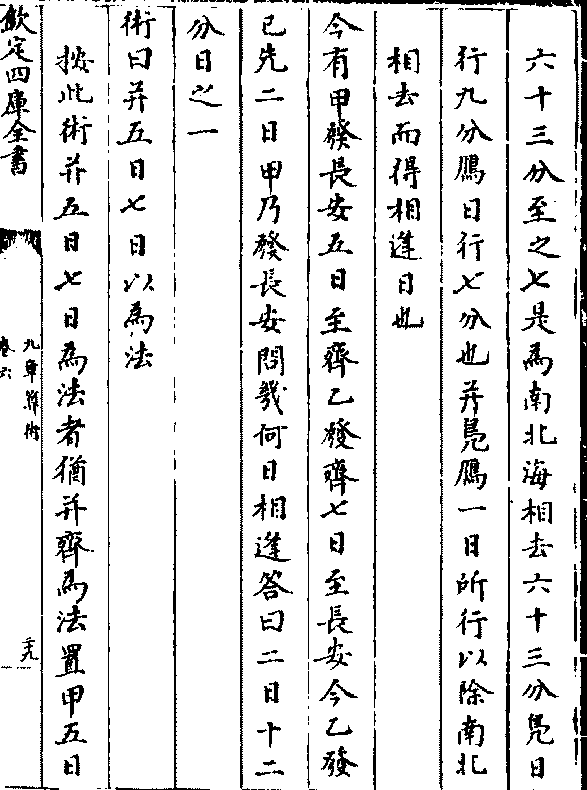 六十三分至之七是為南北海相去六十三分鳧日
行九分鴈日行七分也并鳧鴈一日所行以除南北
相去而得相逢日也
今有甲發長安五日至齊乙發齊七日至長安今乙發
已先二日甲乃發長安問幾何日相逢答曰二日十二
分日之一
術曰并五日七日以為法
按此術并五日七日為法者猶并齊為法置甲五日
欽定四庫全書
九章算術
卷六